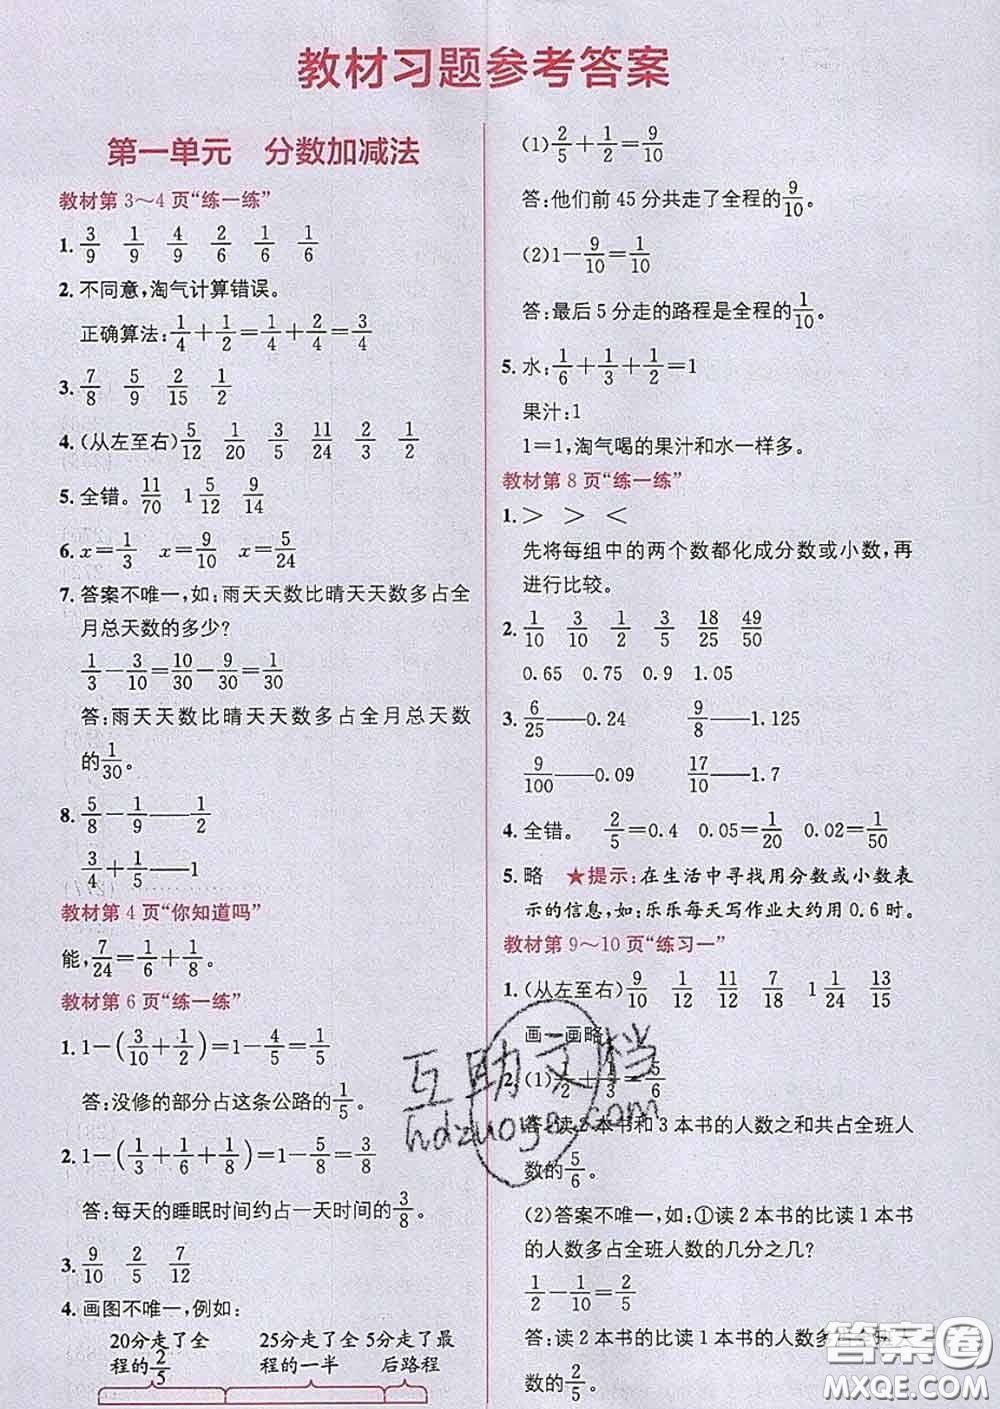 教材习题参考答案
第一单元 分数加减法
教材第3～4页“练一练”
1. 3/9 1/9 4/9 2/6 1/6 1/6
2. 不同意,淘气计算错误。
正确算法:1/4+1/2=1/4+2/4=3/4
3. 7/8 5/9 2/15 1/2
4. (从左至右)5/12 1/20 3/5 11/24 2/3 1/2
5. 全错。 11/70 1 5/12 9/14
6. x=1/3 x=9/10 x=5/24
7. 答案不唯一,如:雨天天数比晴天天数多占全
月总天数的多少?
1/3-3/10=10/30-9/30=1/30
答:雨天天数比晴天天数多占全月总天数
的1/30。
8. 5/8-1/9——1/2
3/4+1/5——1
教材第4页“你知道吗”
能,7/24=1/6+1/8。
教材第6页“练一练”
1. 1-(3/10+1/2)=1-4/5=1/5
答:没修的部分占这条公路的1/5。
2. 1-(1/3+1/6+1/8)=1-5/8=3/8
答:每天的睡眠时间约占一天时间的3/8。
3. 9/10 2/5 7/12
4. 画图不唯一,例如:
20分走了全 25分走了全 5分走了最
程的2/5 程的一半 后路程
(1)2/5+1/2=9/10
答:他们前45分共走了全程的9/10。
(2)1-9/10=1/10
答:最后5分走的路程是全程的1/10。
5. 水:1/6+1/3+1/2=1
果汁:1
1=1,淘气喝的果汁和水一样多。
教材第8页“练一练”
1. > > <
先将每组中的两个数都化成分数或小数,再
进行比较。
2. 1/10 3/10 1/2 3/5 18/25 49/50
0.65 0.75 0.9 1.05
3. 6/25——0.24 9/8——1.125
9/100——0.09 17/10——1.7
4. 全错。 2/5=0.4 0.05=1/20 0.02=1/50
5. 略 ★提示:在生活中寻找用分数或小数表
示的信息,如:乐乐每天写作业大约用0.6时。
教材第9～10页“练习一”
1. (从左至右)9/10 1/12 11/12 7/18 1 1/24 13/15
画一画略
2. (1)1/2+1/3=5/6
答:读2本书和3本书的人数之和共占全班人
数的5/6。
(2)答案不唯一,如:①读2本书的比读1本书
的人数多占全班人数的几分之几?
1/2-1/10=2/5
答:读2本书的比读1本书的人数多占全班人
数的2/5。
互助文档
hdzuoye.com
答案圈
MXQE.COM